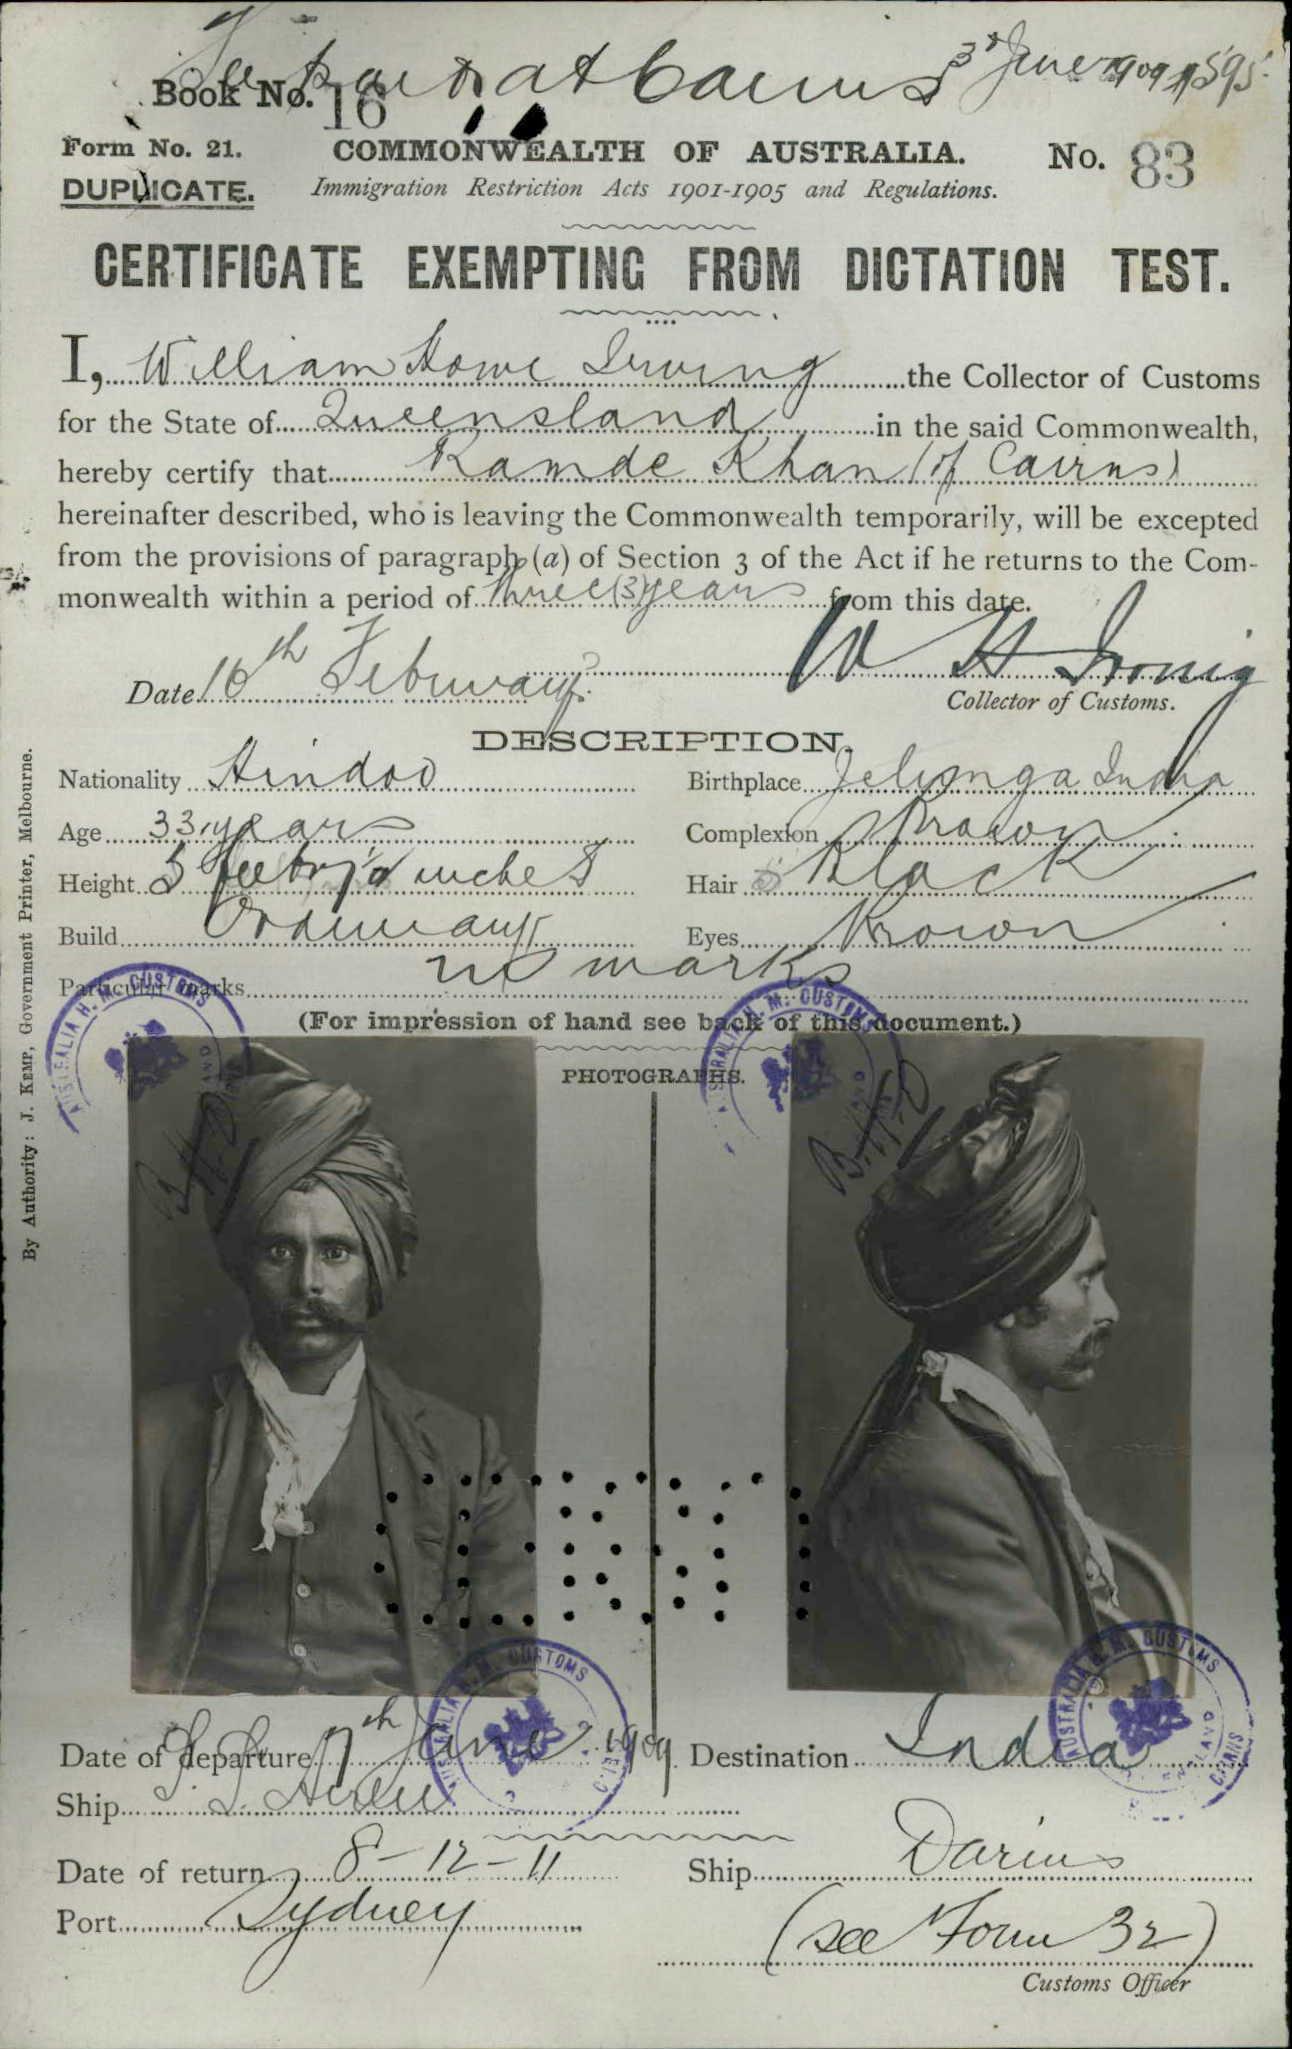 3d June 1909 1595
Book No. 16 at Cairns
Form No. 21. COMMONWEALTH OF AUSTRALIA. No. 83
DUPLICATE. Immigration Restriction Acts 1901-1905 and Regulations.
CERTIFICATE EXEMPTING FROM DICTATION TEST.
I, William Howe Irving the Collector of Customs
for the State of Queensland in the said Commonwealth,
hereby certify that Ramde Khan (of Cairns)
hereinafter described, who is leaving the Commonwealth temporarily, will be excepted
from the provisions of paragraph (a) of Section 3 of the Act if he returns to the Com-
monwealth within a period of three (3) years from this date.
Date 16th February W H Irving
Collector of Customs.
DESCRIPTION.
Nationality Hindoo Birthplace India
Age 33 years Complexion Brown
Height 5 feet inches Hair Black
Build Ordinary Eyes Brown
Particular marks no marks
(For impression of hand see back of this document.)
PHOTOGRAPHS.
AUSTRALIA H. M. CUSTOMS
AUSTRALIA H. M. CUSTOMS
By Authority: J. KEMP, Government Printer, Melbourne.
AUSTRALIA H. M. CUSTOMS
AUSTRALIA H. M. CUSTOMS CAIRNS
Date of departure 7th June 1909 Destination India
Ship S. S.
Date of return 8-12-11 Ship Darius
Port Sydney
(see Form 32)
Customs Officer